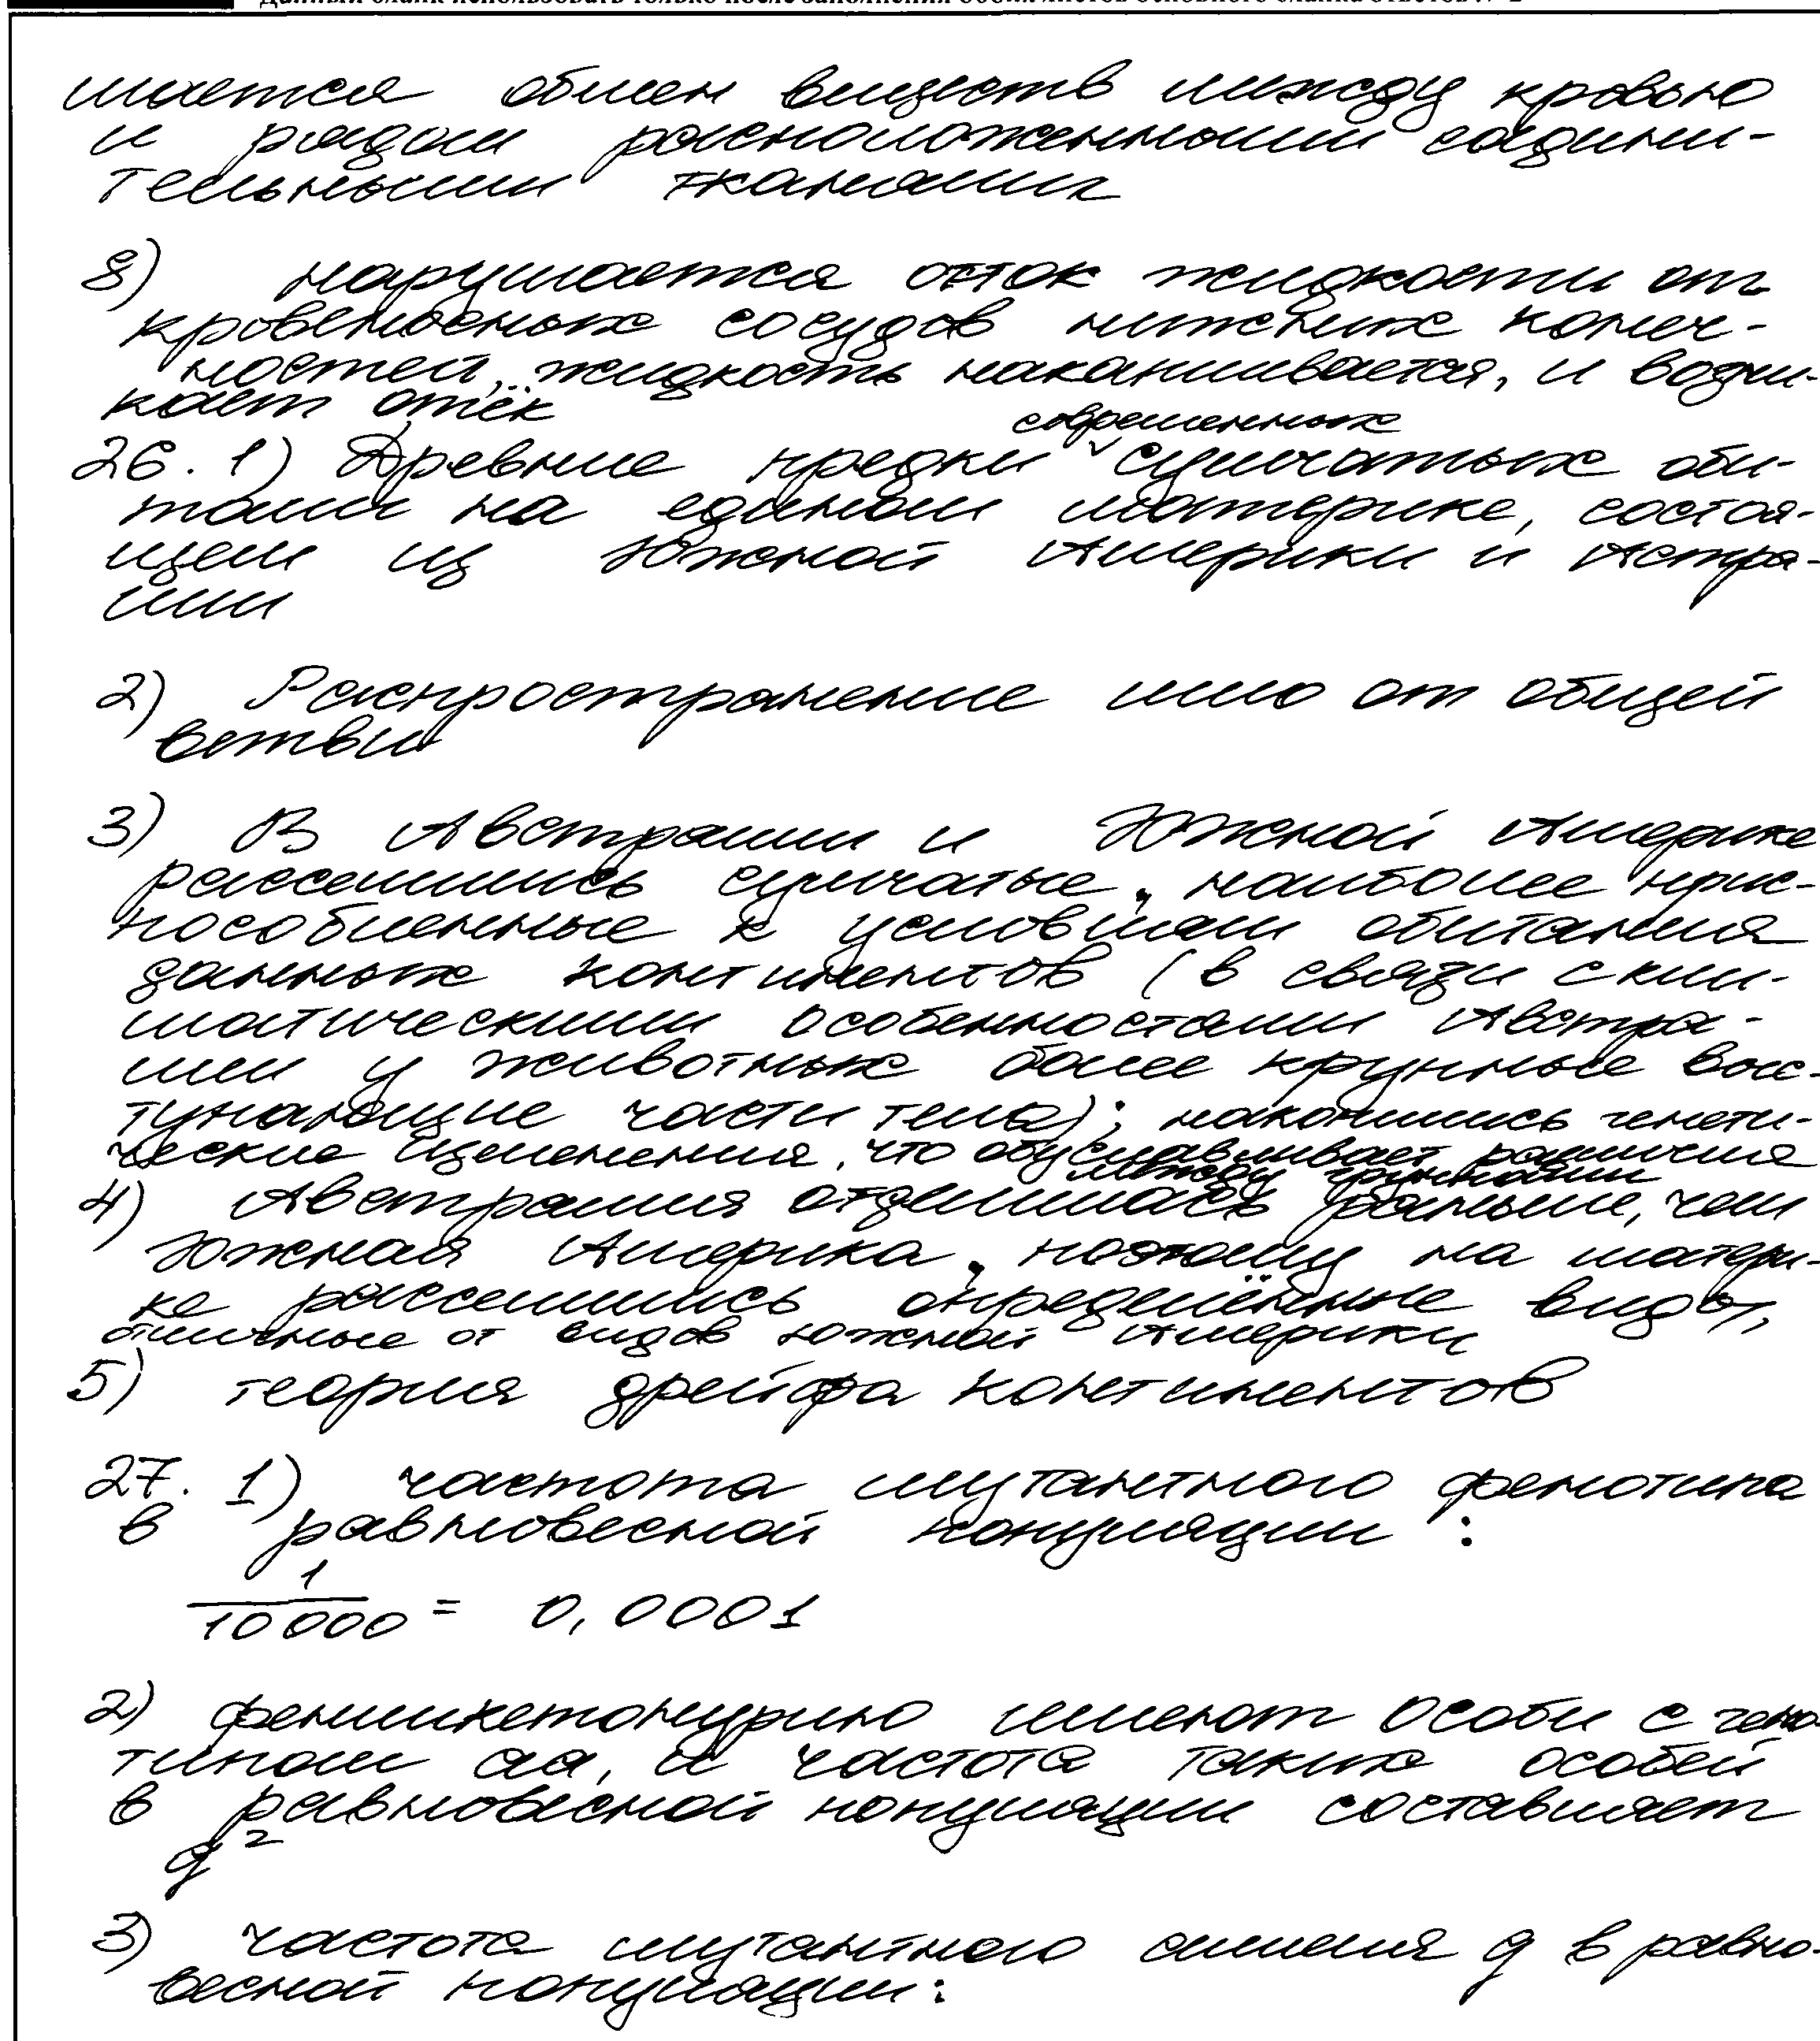 Данный бланк использовать только после заполнения обоих листов основного бланка ответов № 2
шается обмен веществ между кровью
и рядом расположенными соедини-
тельными тканями
8) нарушается отток жидкости от
кровеносных сосудов нижних конеч-
ностей, жидкость накапливается, и возни-
кает отёк
современных
26. 1) Древние предки ˅ сумчатых оби-
тали на едином материке, состоя-
щем из Южной Америки и Астра-
лии
2) Распространение шло от общей
ветви
3) В Австралии и Южной Америке
расселились сумчатые, наиболее прис-
пособленные к условиям обитания
данных континентов (в связи с кли-
матическими особенностями Австра-
лии у животных более крупные выс-
тупающие части тела); накопились генети-
ческие изменения, что обуславливает различия
между группами
4) Австралия отделилась раньше, чем
Южная Америка, поэтому на матери-
ке расселились определённые виды,
отличные от видов Южной Америки
5) теория дрейфа континентов
27. 1) частота мутантного фенотипа
в равновесной популяции :
1/10000 = 0,0001
2) фенилкетонурию имеют особи с гено-
типом aa, и частота таких особей
в равновесной популяции составляет
q²
3) частота мутантного аллеля q в равно-
весной популяции: